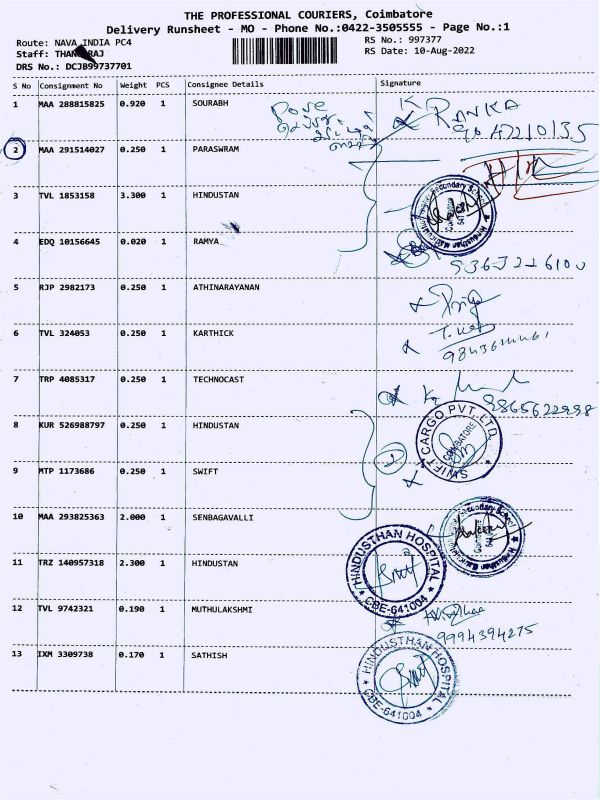 THE PROFESSIONAL COURIERS, Coimbatore
Delivery Runsheet - MO - Phone No.:0422-3505555 - Page No.:1
Route: NAVA INDIA PC4
RS No.: 997377
Staff: THANGARAJ
RS Date: 10-Aug-2022
DRS No.: DCJB99737701
S No Consignment No Weight PCS Consignee Details Signature
1 MAA 288815825 0.920 1 SOURABH
K RANKA
2 MAA 291514027 0.250 1 PARASWRAM
3 TVL 1853158 3.300 1 HINDUSTAN
4 EDQ 10156645 0.020 1 RAMYA
5 RJP 2982173 0.250 1 ATHINARAYANAN
6 TVL 324053 0.250 1 KARTHICK
7 TRP 4085317 0.250 1 TECHNOCAST
9865622998
8 KUR 526988797 0.250 1 HINDUSTAN
SWIFT CARGO PVT. LTD.
COIMBATORE
9 MTP 1173686 0.250 1 SWIFT
10 MAA 293825363 2.000 1 SENBAGAVALLI
11 TRZ 140957318 2.300 1 HINDUSTAN
HINDUSTHAN HOSPITAL
CBE-641004
12 TVL 9742321 0.190 1 MUTHULAKSHMI
9994394275
13 IXM 3309738 0.170 1 SATHISH
HINDUSTHAN HOSPITAL
CBE-641004